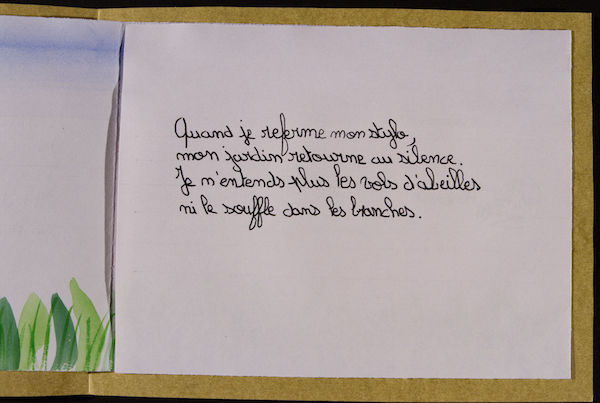 Quand je referme mon stylo,
mon jardin retourne au silence.
Je n'entends plus les vols d'abeilles
ni le souffle dans les branches.